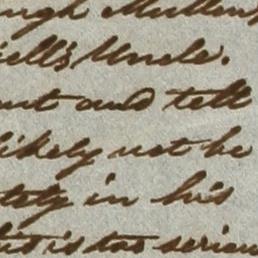 ugh Mullen
ell's Uncle.
unt and tell
likely not be
tely in his
but is too serious